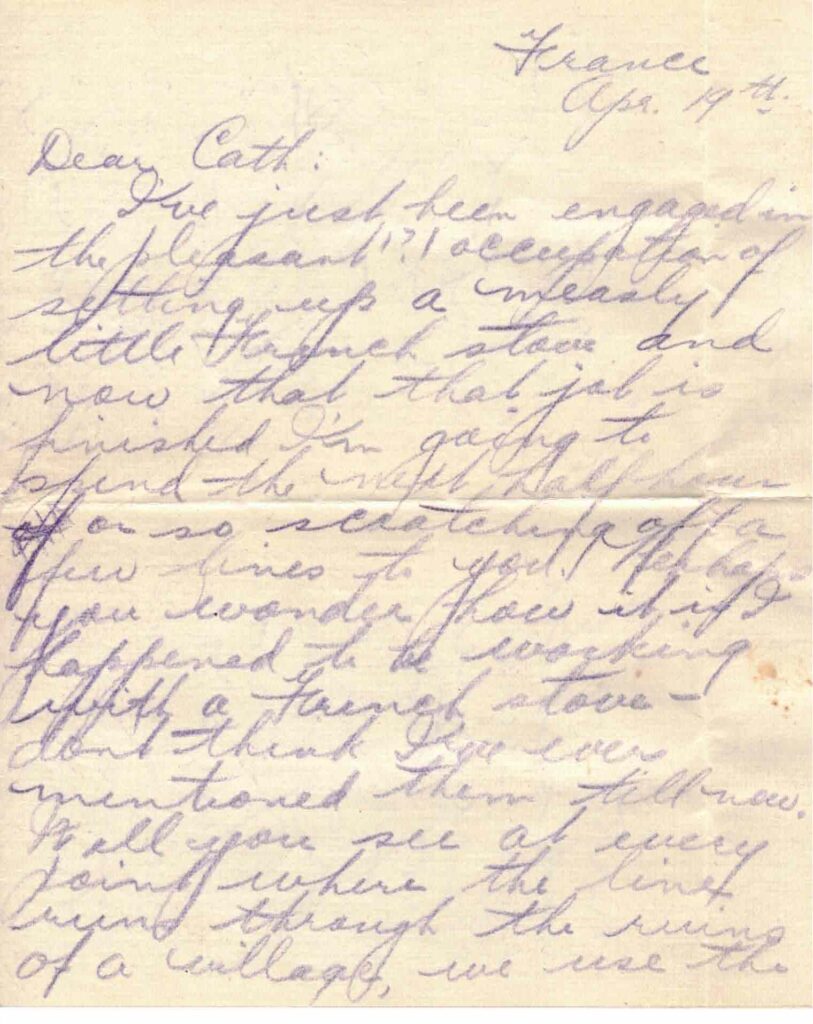 France
Apr. 19th.
Dear Cath:
I've just been engaged in
the pleasant!?! occupation of
setting up a measly
little French stove and
now that that job is
finished I'm going to
spend the next half hour
or so scratching off a
few lines to you. Perhaps
you wonder how it is I
happened to be working
with a French stove –
dont think I've ever
mentioned them till now.
Well you see at every
point where the line
runs through the ruins
of a village, we use the